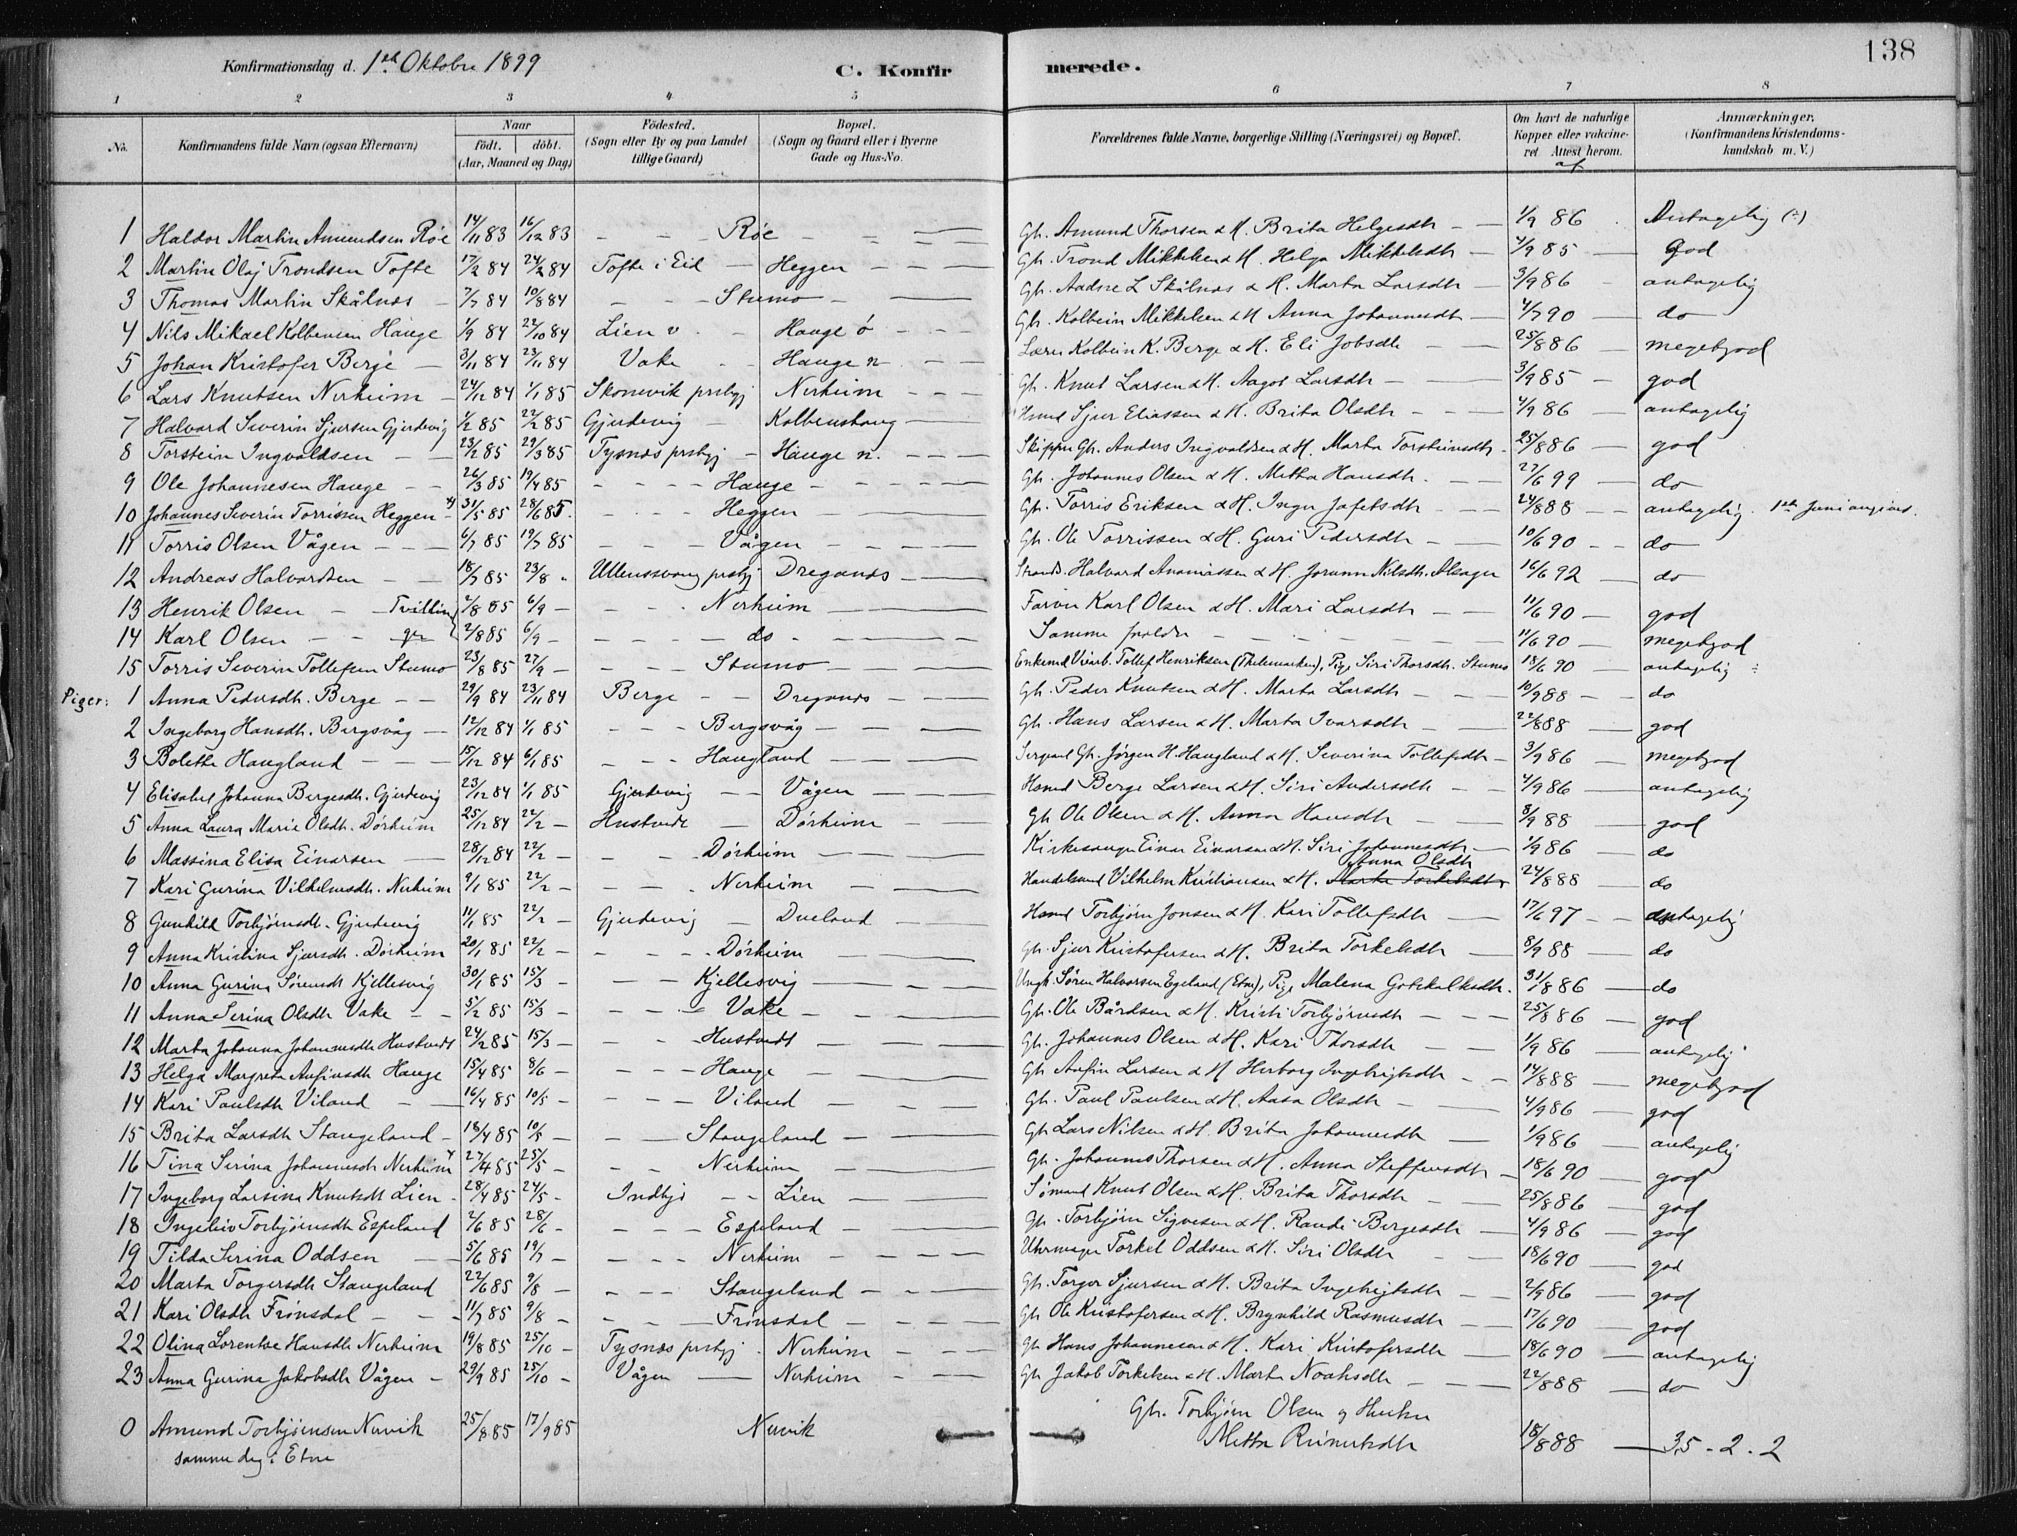 138
Konfirmationsdag d. 1ste Oktobre 1899 C. Konfir merede.
1 2 3 4 5 6 7 8
No. Konfirmandens fulde Navn (ogsaa Efternavn) Naar födt. döbt. (Aar, Maaned og Dag) Födested. (Sogn eller By og paa Landet tillige Gaard) Bopæl. (Sogn og Gaard eller i Byerne Gade og Hus-No. Forældrenes fulde Navne, borgerlige Stilling (Næringsvei) og Bopæl. Om havt de naturlige Kopper eller vakcineret. Attest herom. af Anmærkninger. (Konfirmandens Kristendomskundskab m. V.)
1 Haldor Martin Amundsen Röe 14/11 83 16/12 83 - - Röe - Gh. Amund Thorsen & H. Brita Helgesdtr - 1/9 86 Antagelig (÷)
2 Martin Olaj Trondsen Tofte 17/2 84 24/2 84 Tofte i Eid - Heggen - Gh. Trond Mikkelsen & H. Helga Mikkelsdtr - 4/9 85 - God
3 Thomas Martin Skålnæs - 7/7 84 10/8 84 - - Stumo - Gh. Aadne L Skålnæs & H. Marta Larsdtr - 3/9 86 - antagelig
4 Nils Mikael Kolbensen Hauge 1/9 84 22/10 84 Lien v - Hauge ö - Gh. Kolbein Mikkelsen & H Anna Johannesdtr - 4/7 90 - do
5 Johan Kristofer Berge - 3/11 84 23/11 84 Vake - Hauge n - Lærer Kolbein K. Berge & H. Eli Jobsdtr - 25/8 86 - megetgod
6 Lars Knutsen Nerheim - 24/12 84 1/1 85 Skonevik prstgj Nerheim - Gh. Knut Larsen & H. Aagot Larsdtr - 3/9 85 - god
7 Halvard Severin Sjursen Gjerdevig 1/2 85 22/2 85 Gjerdevig - Kolbenshaug - Hsmd Sjur Eliassen & H. Brita Olsdtr - 4/9 86 - antagelig
8 Torstein Ingvaldsen - 23/2 85 29/3 85 Tysnæs prstgj - Hauge n. - Skipper Gh. Anders Ingvaldsen & H. Marta Torsteinsdtr - 25/8 86 - god
9 Ole Johannesen Hauge - 26/3 85 19/4 85 - Hauge - Gh. Johannes Olsen & H. Metha Hansdtr. - 27/6 99 - do
10 Johannes Severin Torrissen Heggen 31/5 85 28/6 85. - Heggen Gh. Torris Eriksen & H. Inger Jafetsdtr - 24/8 88 - antagelig.
11 Torris Olsen Vågen - 6/7 85 19/7 85 - Vågen - Gh. Ole Torrissen & H. Guri Pedersdtr - 10/6 90 - do
12 Andreas Halvardsen - 18/7 85 23/8 - Ullensvang prstgj Dreganæs - Strands. Halvard Ananiassen & H. Johann Nilsdtr. Alsager 16/6 92 - do
13 Henrik Olsen - Tvillin 2/8 85 6/9 - - Nerheim - Farver Karl Olsen & H. Mari Larsdtr - 11/6 90 - god
14 Karl Olsen - ger 2/8 85 6/9 - - do - Samme foraldre - 11/6 90 - megetgod
15 Torris Severin Tollefsen Stumo 23/8 85 27/9 - - Stumo - Enkemd Tollef Henriksen (Thelemarken), Pige Siri Thorsdtr. Stumo 18/6 90 - antagelig ÷
Piger: 1 Anna Pedersdtr. Berge - 29/9 84 23/11 84 Berge - Dreganæs - Gh. Peder Knutsen & H. Marta Larsdtr - 10/9 88 - do
2 Ingeborg Hansdtr. Bergsvåg - 12/12 84 1/1 85 - Bergsvåg - Gh. Hans Larsen & H. Marta Ivarsdtr - 22/8 88 - god
3 Bolette Haugland - 15/12 84 6/1 85 - Haugland - Sergeant Gh. Jörgen H. Haugland & H. Severina Tollefsdtr - 3/9 86 - megetgod
4 Elisabet Johanna Bergesdtr. Gjerdevig 23/12 84 1/1 85 Gjerdevig - Vågen - Hsmd Berge Larsen & H. Siri Andersdtr - 4/9 86 - antagelig
5 Anna Laura Marie Olsdtr. Dörheim 25/12 84 22/2 - Hustvedt - Dörheim - Gh Ole Olsen & H. Anna Hansdtr - 8/9 88 - god
6 Massina Elisa Einarsen - 28/12 84 22/2 - - Dörheim - Kirkesanger Einar Einarsen & H. Siri Johannesdtr - 1/9 86 - do
7 Kari Gurina Vilhelmsdtr. Nerheim 9/1 85 22/2 - - Nerheim - Handelsmd Vilhelm Kristiansen & H. Anna Olsdtr 24/8 88 - do
8 Gunhild Torbjörnsdtr. Gjerdevig 11/1 85 22/2 - Gjerdevig - Dueland - Hsmd Torbjörn Jonsen & H. Kari Tollefsdtr - 17/6 97 - antagelig
9 Anna Kristina Sjursdtr. Dörheim 20/1 85 22/2 - - Dörheim - Gh. Sjur Kristofersen & H. Brita Torkelsdtr - 8/9 88 - do
10 Anna Gurina Sörensdtr Kjellesvig 30/1 85 15/3 - - Kjellesvig - Ungk. Sören Halvorsen Egeland (Etne), Pige Malena Gotskalksdtr. 31/8 86 - do
11 Anna Serina Olsdtr Vake - 5/2 85 15/3 - - Vake - Gh. Ole Bårdsen & H. Kristi Torbjörnsdtr - 25/8 86 - god
12 Marta Johanna Johannesdtr Hustvedt 24/2 85 15/3 - - Hustvedt - Gh. Johannes Olsen & H. Kari Thorsdtr - 1/9 86 - antagelig
13 Helga Margreta Anfinsdtr Hauge 15/4 85 8/6 - - Hauge - Gh Anfin Larsen & H Herborg Ingebrigtsdtr - 14/8 88 - megetgod
14 Kari Paulsdtr Viland - 16/4 85 10/5 - - Viland - Gh. Paul Paulsen & H. Aasa Olsdtr - 4/9 86 - god
15 Brita Larsdtr Stangeland - 18/4 85 10/5 - - Stangeland - Gh Lars Nilsen & H. Brita Johannesdtr - 1/9 86 - antagelig
16 Tina Serina Johannesdtr Nerheim 27/4 85 25/5 - - Nerheim - Gh. Johannes Thorsen & H. Anna Steffensdtr - 18/6 90 - god
17 Ingeborg Larsina Knutsdtr Lien - 28/4 85 24/5 - Indbjo - Lien - Sömand Knut Olsen & H. Brita Thorsdtr - 25/8 86 - god
18 Ingeliv Torbjörnsdtr Espeland 2/6 85 28/6 - - Espeland - Gh. Torbjörn Sigvesen & H. Randi Bergesdtr - 4/9 86 - god
19 Tilda Serina Oddsen - 5/6 85 19/7 - - Nerheim - Uhrmager Torkel Oddsen & H. Siri Olsdtr - 18/6 90 - god
20 Marta Torgersdtr Stangeland 22/6 85 9/8 - - Stangeland - Gh. Torger Sjursen & H. Brita Ingebrigtsdtr - 2/9 86 - god
21 Kari Olsdtr Frönsdal - 11/7 85 9/8 - - Frönsdal - Gh Ole Kristofersen & H. Brynhild Rasmusdtr - 17/6 90 - god
22 Olina Lorentse Hansdtr Nerheim 19/8 85 25/10 - Tysnæs prstgj. Nerheim - Gh Hans Johannesen & H. Kari Kristofersdtr - 18/6 90 - antagelig
23 Anna Gurina Jakobsdtr Vågen - 29/9 85 25/10 - Vågen - Nerheim - Gh Jakob Torkelsen & H. Marta Noahsdtr - 22/8 88 - do
0 Amund Torbjörnsen Nervik 25/8 85 17/9 85 Nervik Gh. Torbjörn Olsen og Hustru
samme dag i Etne Metta Reinertsdtr 18/8 88 - 35-2-2